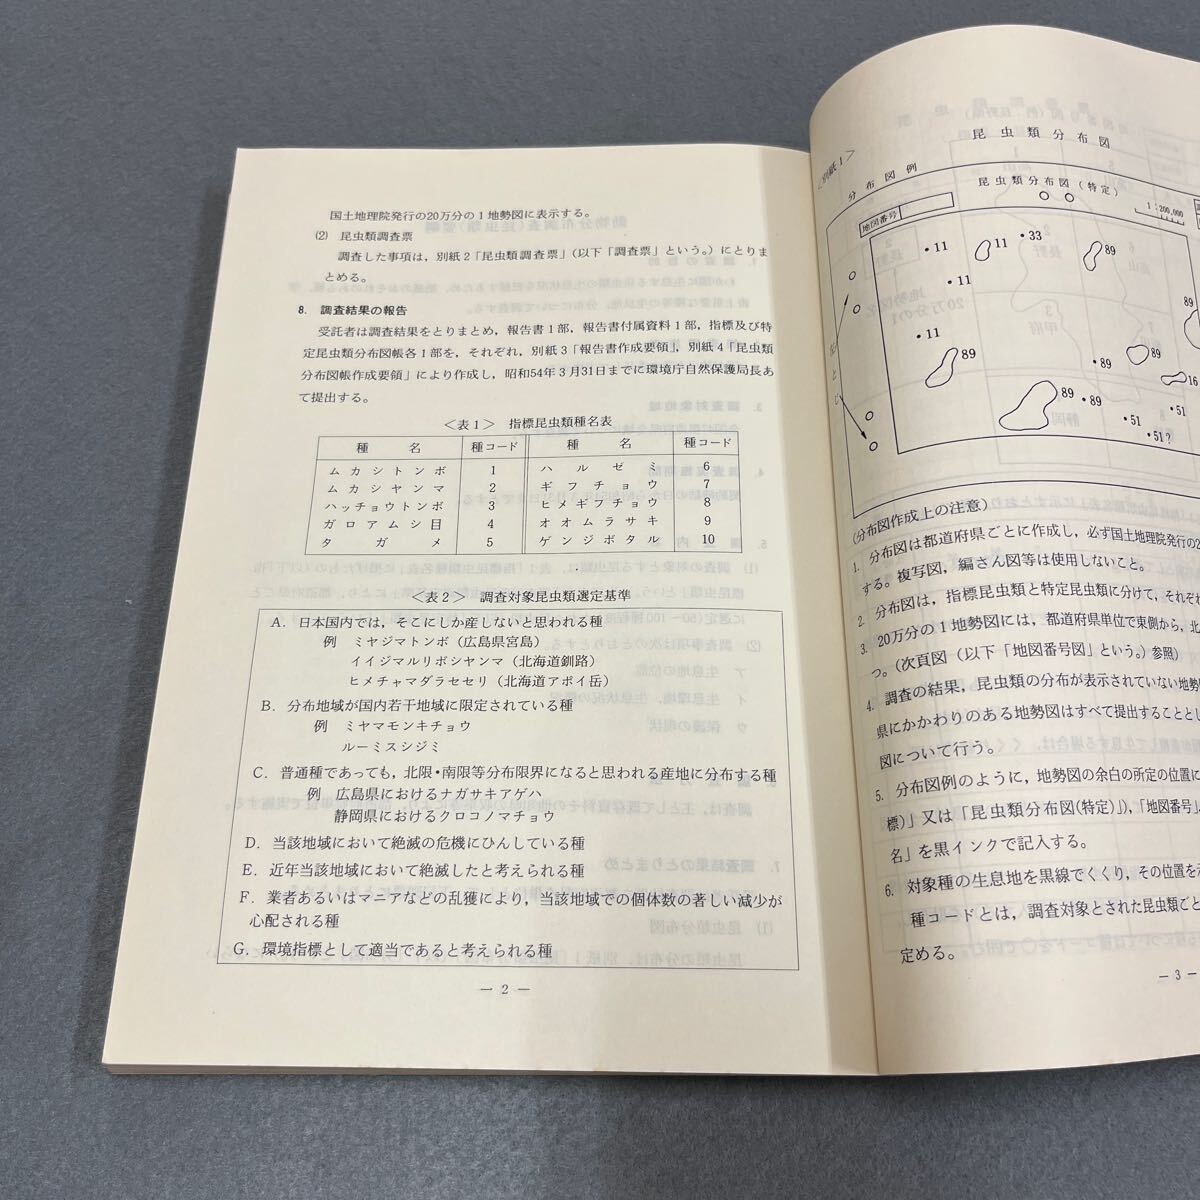 国土地理院発行の20万分の1地勢図に表示する。
(2) 昆虫類調査票
調査した事項は，別紙2「昆虫類調査票」(以下「調査票」という。)にとりま
とめる。
8. 調査結果の報告
受託者は調査結果をとりまとめ，報告書1部，報告書付属資料1部，指標及び特
定昆虫類分布図帳各1部を，それぞれ，別紙3「報告書作成要領」，別紙4「昆虫類
分布図帳作成要領」により作成し，昭和54年3月31日までに環境庁自然保護局長あ
て提出する。
＜表1＞ 指標昆虫類種名表
種名 種コード 種名 種コード
ムカシトンボ 1 ハルゼミ 6
ムカシヤンマ 2 ギフチョウ 7
ハッチョウトンボ 3 ヒメギフチョウ 8
ガロアムシ目 4 オオムラサキ 9
タガメ 5 ゲンジボタル 10
＜表2＞ 調査対象昆虫類選定基準
A. 日本国内では，そこにしか産しないと思われる種
例 ミヤジマトンボ（広島県宮島）
イイジマルリボシヤンマ（北海道釧路）
ヒメチャマダラセセリ（北海道アポイ岳）
B. 分布地域が国内若干地域に限定されている種
例 ミヤマモンキチョウ
ルーミスシジミ
C. 普通種であっても，北限・南限等分布限界になると思われる産地に分布する種
例 広島県におけるナガサキアゲハ
静岡県におけるクロコノマチョウ
D. 当該地域において絶滅の危機にひんしている種
E. 近年当該地域において絶滅したと考えられる種
F. 業者あるいはマニアなどの乱獲により，当該地域での個体数の著しい減少が
心配される種
G. 環境指標として適当であると考えられる種
— 2 —
＜別紙1＞
昆虫類分布図
分布図例
昆虫類分布図（特定）
○○
1:200,000
地図番号
・11
11
・33
89
・11
・11
89
89
89
・89
16
89
・89
・51
・51
・51?
とじ
(分布図作成上の注意)
1. 分布図は都道府県ごとに作成し，必ず国土地理院発行の2
する。複写図，編さん図等は使用しないこと。
2. 分布図は，指標昆虫類と特定昆虫類に分けて，それぞれ
3. 20万分の1地勢図には，都道府県単位で東側から，北
つ。(次頁図（以下「地図番号図」という。）参照)
4. 調査の結果，昆虫類の分布が表示されていない地勢
県にかかわりのある地勢図はすべて提出することとし
図について行う。
5. 分布図例のように，地勢図の余白の所定の位置に
標)」又は「昆虫類分布図(特定)」，「地図番号」
名」を黒インクで記入する。
6. 対象種の生息地を黒線でくくり，その位置を
種コードとは，調査対象とされた昆虫類ごと
定める。
— 3 —